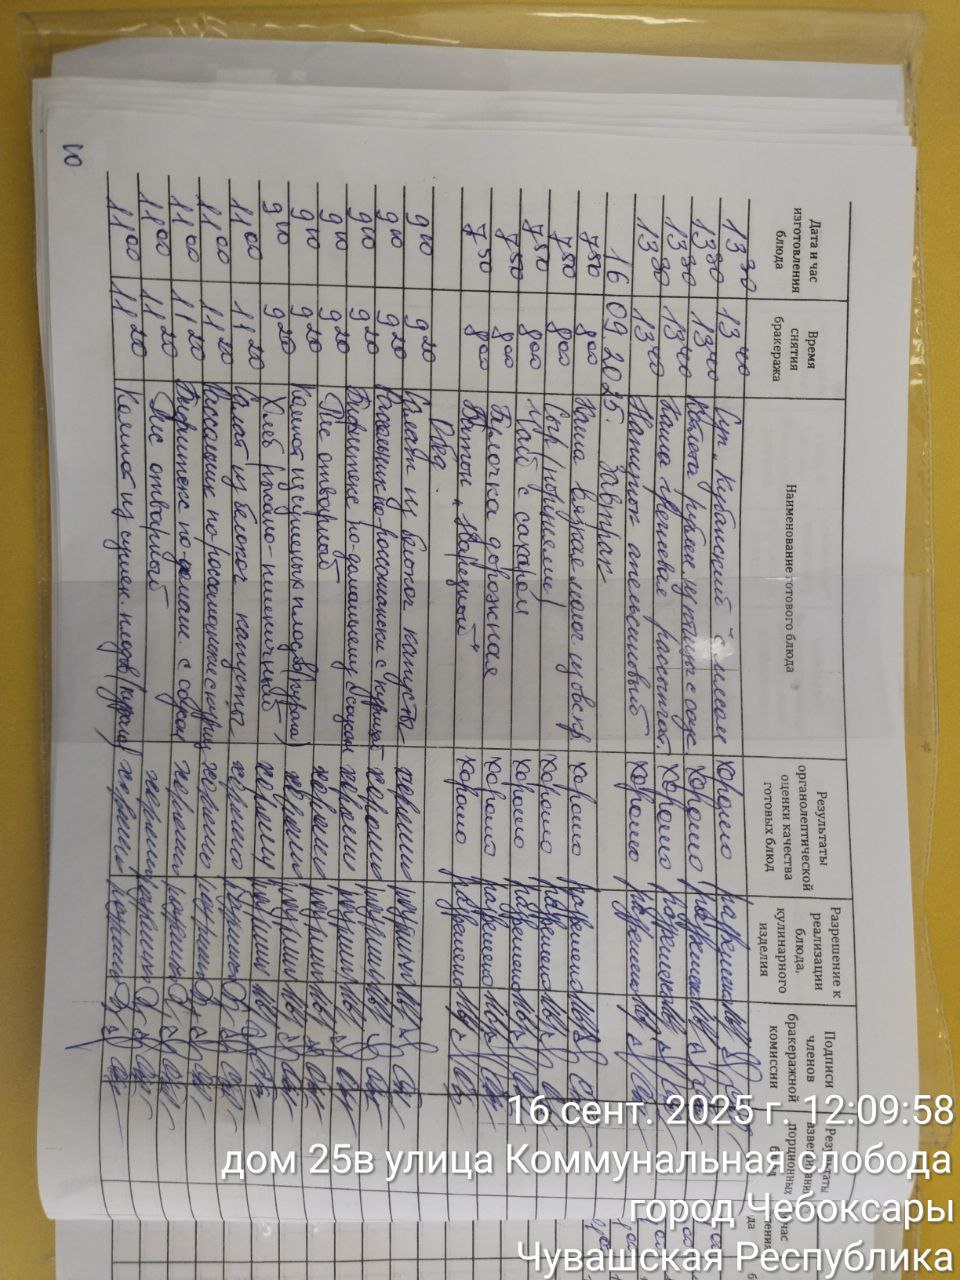 Дата и час изготовления блюда | Время снятия бракеража | Наименование готового блюда | Результаты органолептической оценки качества готовых блюд | Разрешение к реализации блюда, кулинарного изделия | Подписи членов бракеражной комиссии | Результаты взвешивания порционных блюд
13 30 | 13 40 | Суп „Кубанский" с мясом | хорошо | разрешено
13 30 | 13 40 | Котлета рублен из птицы с соус | хорошо | разрешено
13 30 | 13 40 | Каша гречневая рассыпчат. | хорошо | разрешено
13 30 | 13 40 | Напиток апельсиновый | хорошо | разрешено
16 09. 2025. Завтрак
7 50 | 8 00 | Каша вязкая молоч из овсяр | хорошо | разрешено
7 50 | 8 00 | Сыр (порциями) | хорошо | разрешено
7 50 | 8 00 | Чай с сахаром | хорошо | разрешено
7 50 | 8 00 | Булочка дорожная | хорошо | разрешено
7 50 | 8 00 | Батон „Нарезной" | хорошо | разрешено
Обед.
9 10 | 9 20 | Салат из белокоч капусты | хорошо | разрешено
9 10 | 9 20 | Рассольник по-россошански с курицей | хорошо | разрешено
9 10 | 9 20 | Бифштекс по-домашнему с соусом | хорошо | разрешено
9 10 | 9 20 | Рис отварной | хорошо | разрешено
9 10 | 9 20 | Компот из сушеных плодов (курага) | хорошо | разрешено
9 10 | 9 20 | Хлеб ржано-пшеничный | хорошо | разрешено
11 00 | 11 20 | Салат из белокоч капусты | хорошо | разрешено
11 00 | 11 20 | Рассольник по-россошански с куриц | хорошо | разрешено
11 00 | 11 20 | Бифштекс по-домаш. с соусом | хорошо | разрешено
11 00 | 11 20 | Рис отварной | хорошо | разрешено
11 00 | 11 20 | Компот из сушен. плодов (курага) | хорошо | разрешено
10
16 сент. 2025 г. 12:09:58
дом 25в улица Коммунальная слобода
город Чебоксары
Чувашская Республика